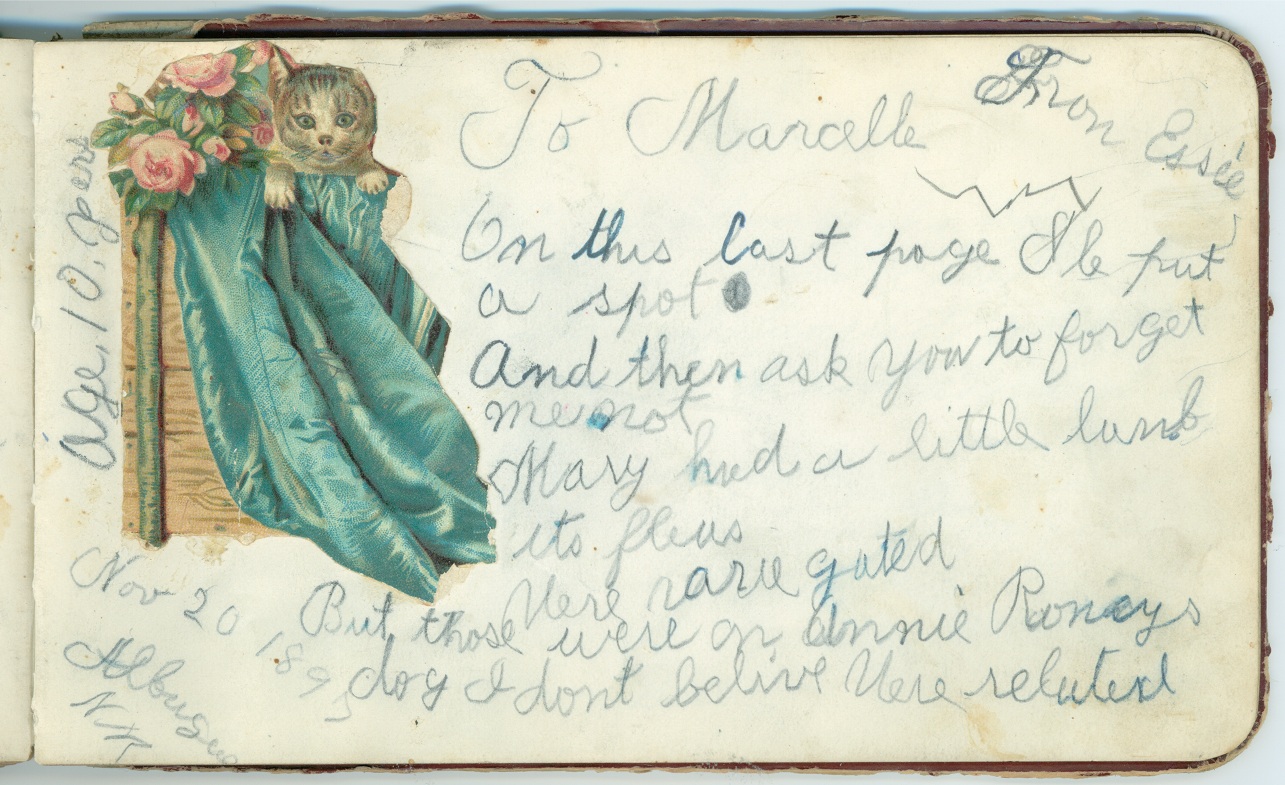 To Marcelle
From Essie
On this last page I'le put
a spot
And then ask you to forget
me not
Mary had a little lamb
its fleas
Were varie gated
But those were on Annie Roneys
dog I dont belive Were related
Age. 10. years
Nov 20 1895
Albuquerque
N.M.